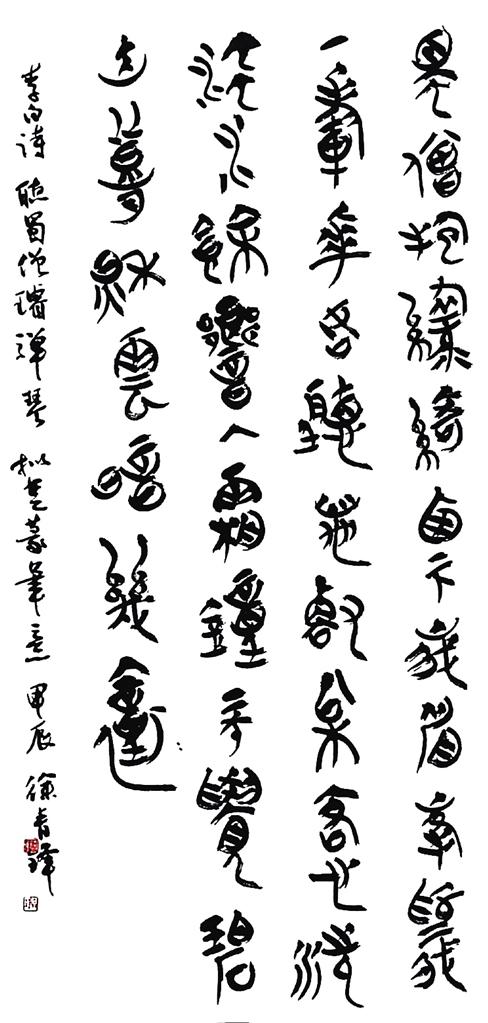 蜀僧抱綠綺西下峨眉峰為我
一揮手如聽萬壑松客心洗
流水餘響入霜鐘不覺碧
山暮秋雲暗幾重
李白詩 聽蜀僧濬彈琴 擬楚篆筆意 甲辰 徐青